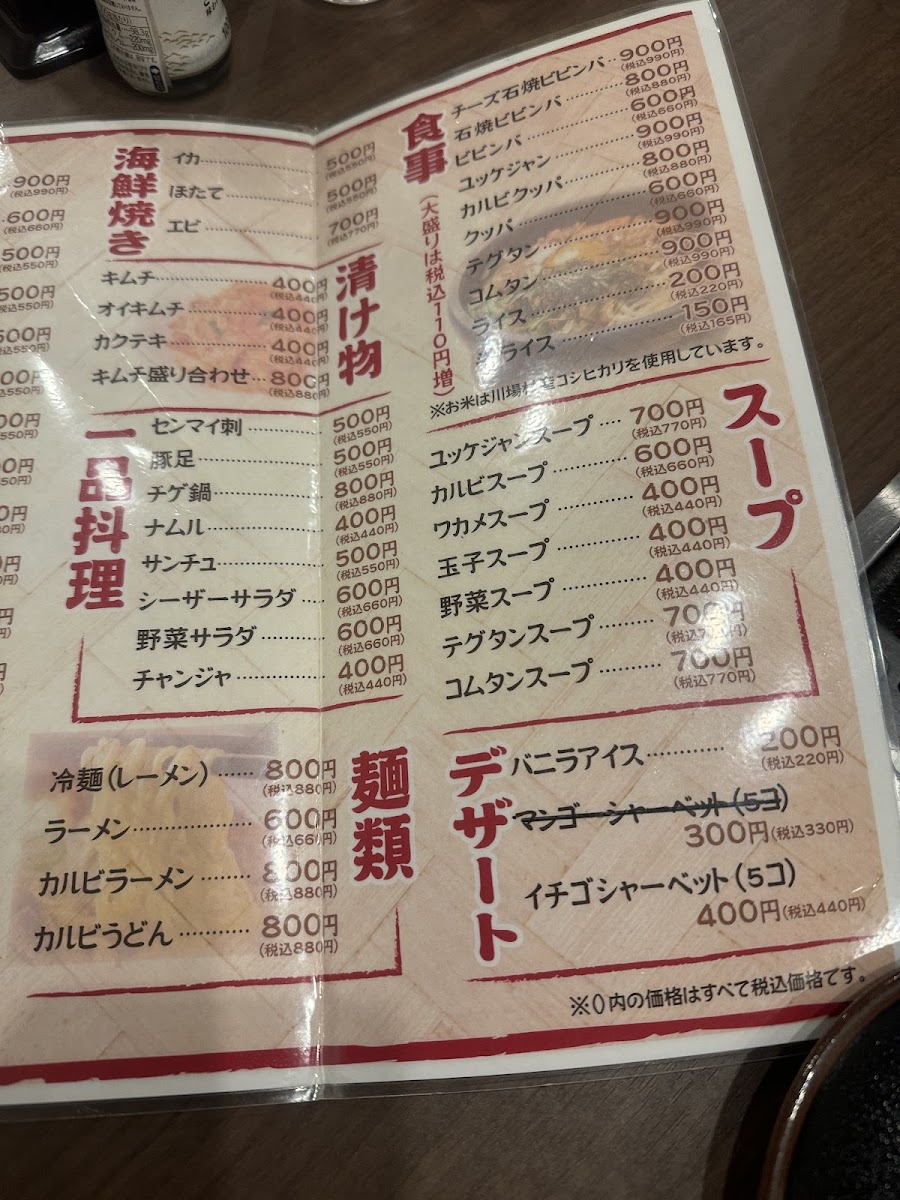 900円
(税込990円)
600円
(税込660円)
500円
(税込550円)
海鮮焼き
イカ 500円
(税込550円)
ほたて 500円
(税込550円)
エビ 700円
(税込770円)
漬け物
キムチ 400円
(税込440円)
オイキムチ 400円
(税込440円)
カクテキ 400円
(税込440円)
キムチ盛り合わせ 800円
(税込880円)
一品料理
センマイ刺 500円
(税込550円)
豚足 500円
(税込550円)
チゲ鍋 800円
(税込880円)
ナムル 400円
(税込440円)
サンチュ 500円
(税込550円)
シーザーサラダ 600円
(税込660円)
野菜サラダ 600円
(税込660円)
チャンジャ 400円
(税込440円)
麺類
冷麺(レーメン) 800円
(税込880円)
ラーメン 600円
(税込660円)
カルビラーメン 800円
(税込880円)
カルビうどん 800円
(税込880円)
食事(大盛りは税込110円増)
チーズ石焼ビビンバ 900円
(税込990円)
石焼ビビンバ 800円
(税込880円)
ビビンバ 600円
(税込660円)
ユッケジャン 900円
(税込990円)
カルビクッパ 800円
(税込880円)
クッパ 600円
(税込660円)
テグタン 900円
(税込990円)
コムタン 900円
(税込990円)
ライス 200円
(税込220円)
ライス 150円
(税込165円)
※お米は川場村産コシヒカリを使用しています。
スープ
ユッケジャンスープ 700円
(税込770円)
カルビスープ 600円
(税込660円)
ワカメスープ 400円
(税込440円)
玉子スープ 400円
(税込440円)
野菜スープ 400円
(税込440円)
テグタンスープ 700円
コムタンスープ 700円
(税込770円)
デザート
バニラアイス 200円
(税込220円)
マンゴーシャーベット(5コ)
300円(税込330円)
イチゴシャーベット(5コ)
400円(税込440円)
※()内の価格はすべて税込価格です。